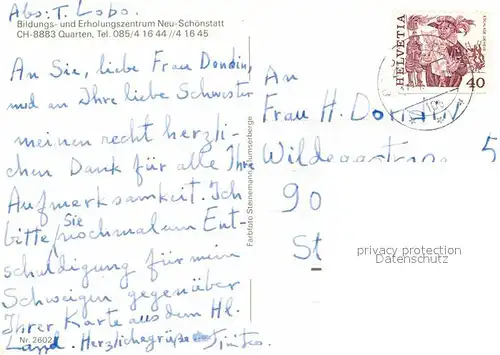 Abs: T. Lobo.
Bildungs- und Erholungszentrum Neu-Schönstatt
CH-8883 Quarten, Tel. 085/4 16 44 // 4 16 45
An Sie, liebe Frau
und an Ihre liebe Schwester
meinen recht herzli-
chen Dank für alle Ihre
Aufmerksamkeit. Ich
bitte Sie nochmal um Ent-
schuldigung für mein
Schweigen gegenüber
Ihrer Karte aus dem Hl.
Land. Herzliche Grüße
Nr. 2602
Farbfoto Steinemann, Flumserberge
HELVETIA
40
An
Frau H.
5
90
St
privacy protection
Datenschutz